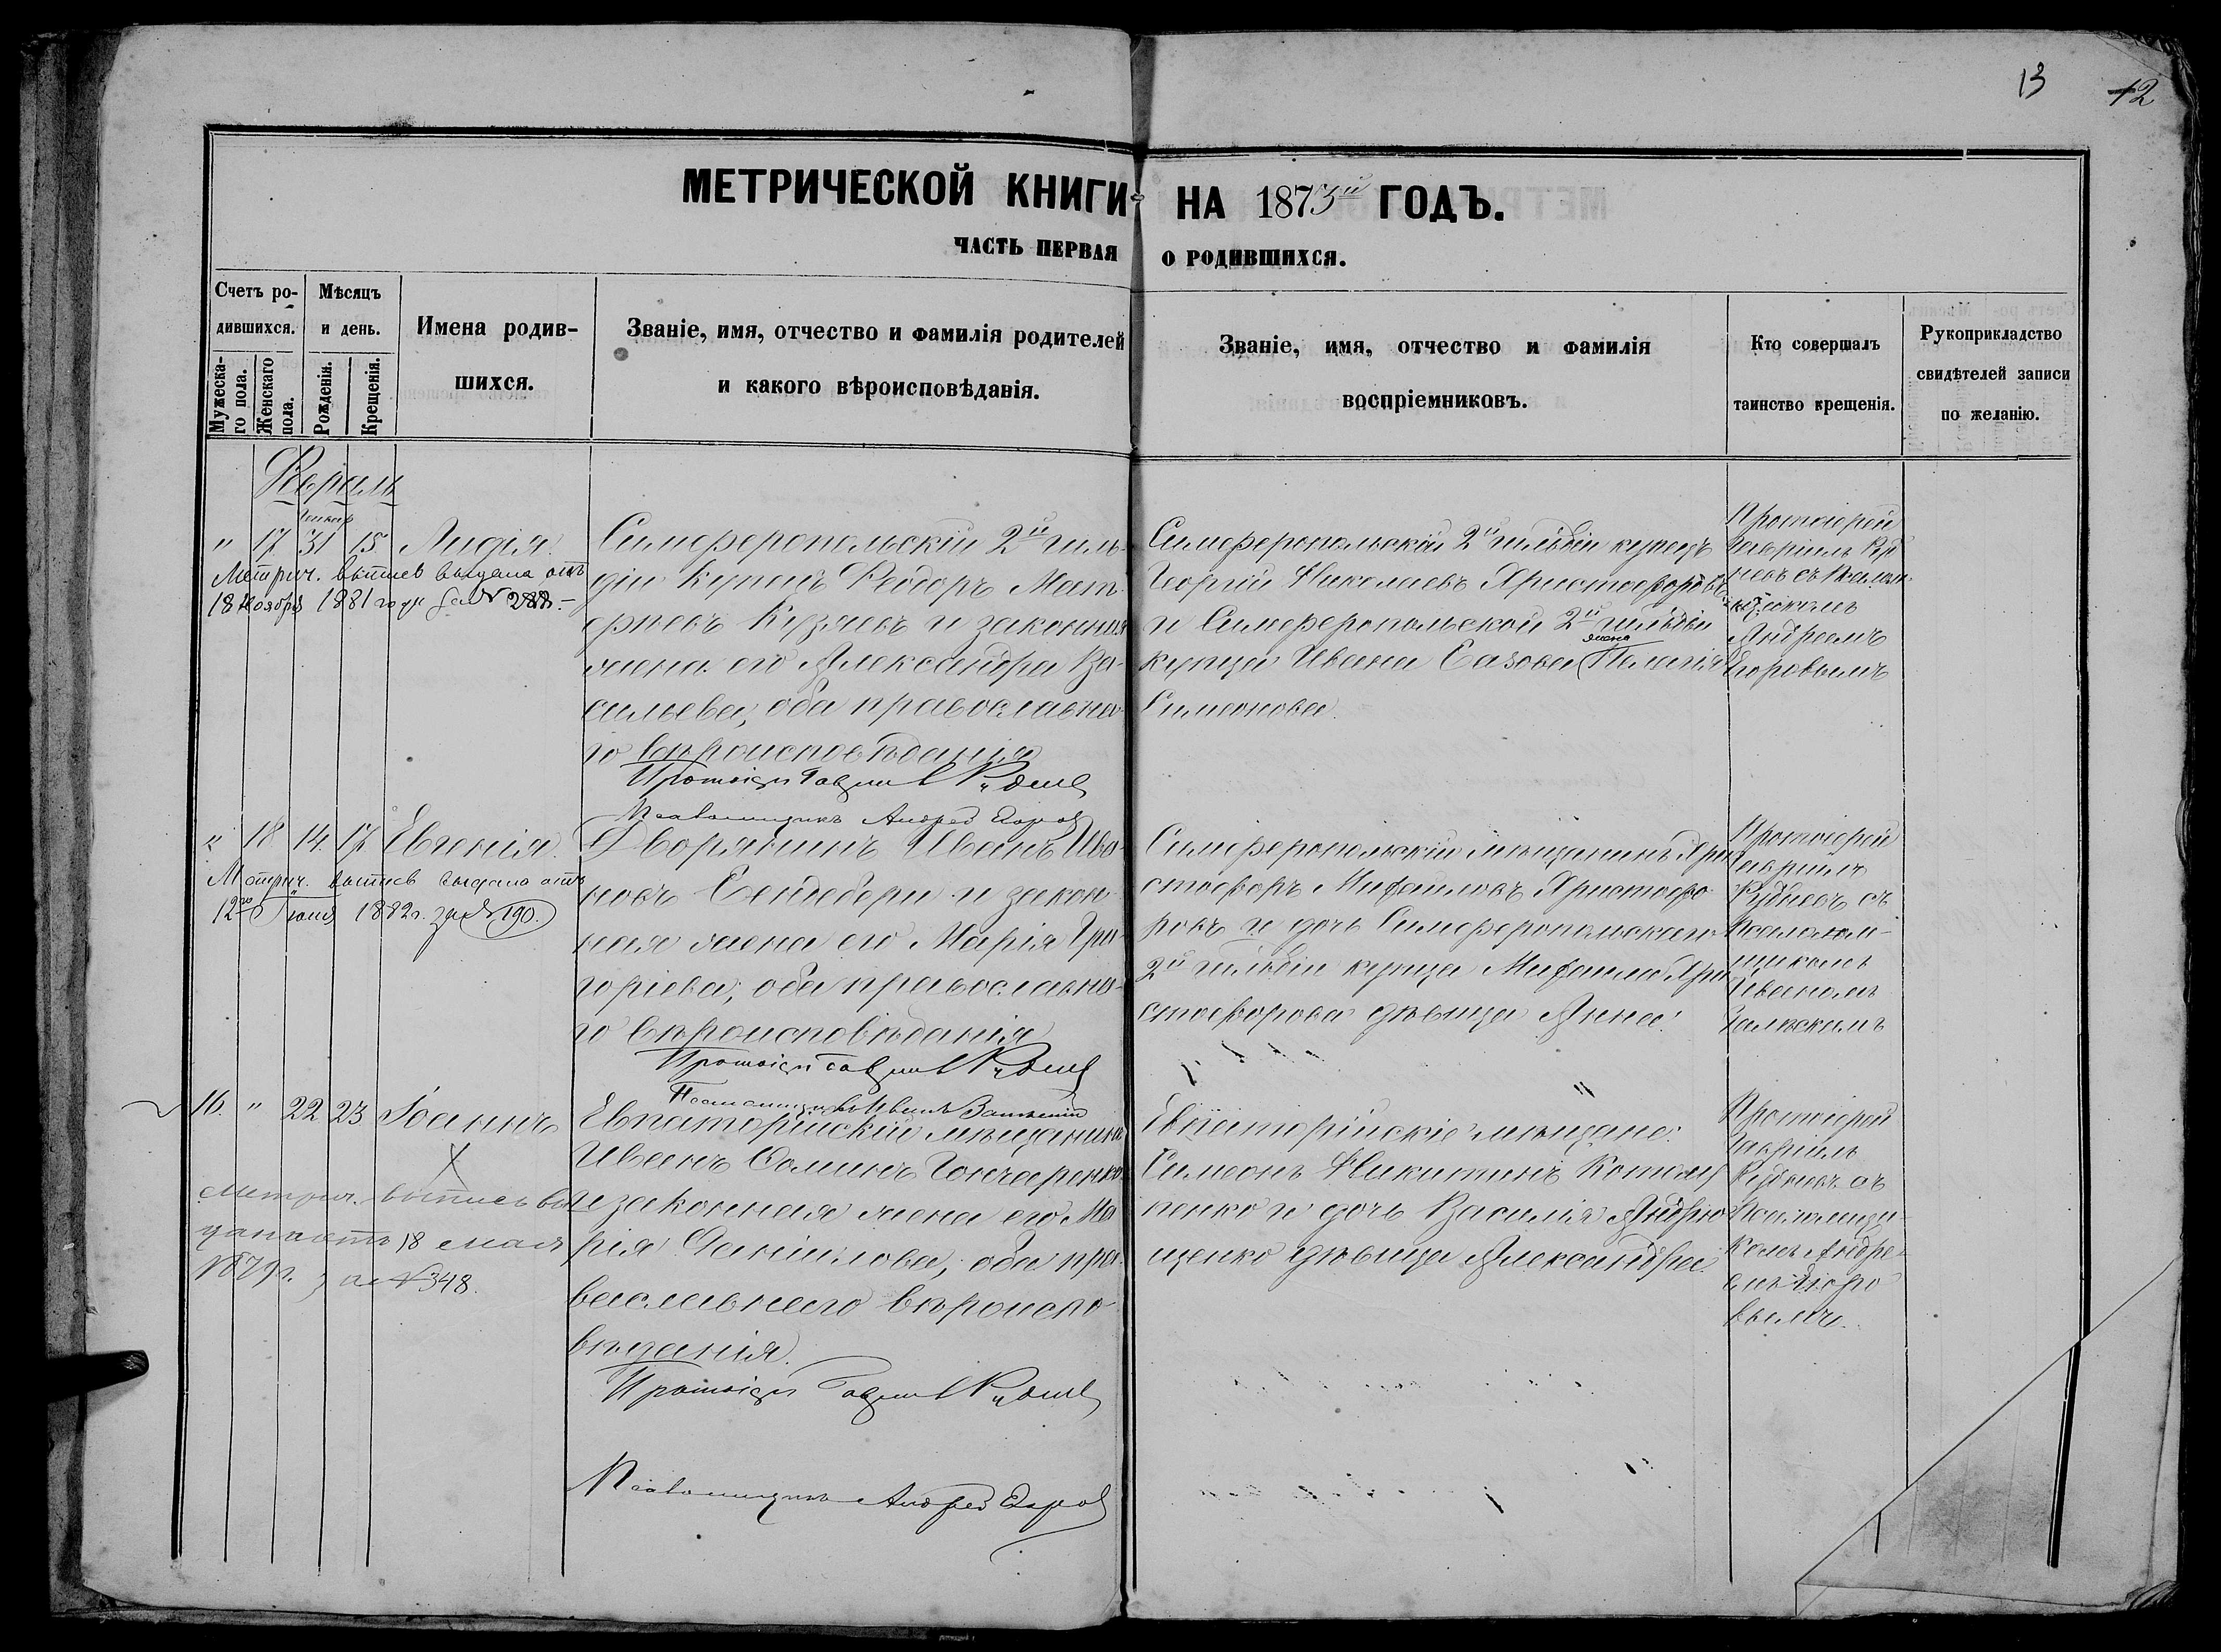 13 12
МЕТРИЧЕСКОЙ КНИГИ НА 1873й ГОДЪ.
ЧАСТЬ ПЕРВАЯ О РОДИВШИХСЯ.
Счетъ ро-
дившихся.
Мужеска-
го пола.
Женскаго
пола.
Мѣсяцъ
и день.
Рожденія.
Крещенія.
Имена родив-
шихся.
Званіе, имя, отчество и фамилія родителей
и какого вѣроисповѣданія.
Званіе, имя, отчество и фамилія
воспріемниковъ.
Кто совершалъ
таинство крещенія.
Рукоприкладство
свидѣтелей записи
по желанію.
" 17 31 15 Лидія.
Метрич. выпись выдана отъ
18 Ноября 1881 года за №
Симферопольскій 2й гиль-
діи Купецъ Ѳеодоръ
и законная
жена его Александра Ва-
сильева, оба православна-
го вѣроисповѣданія
Псаломщикъ Андрей Егоровъ
Симферопольскій 2й гильдіи купецъ
Георгій Николаевъ Христофоровъ
и Симферопольской 2й гильдіи
купца Ивана Сазова жена Пелагія
Симеонова.
Протоіерей
Гавріилъ Руд
невъ съ Псалом-
щикомъ
Андреемъ
Егоровымъ
" 18 14 17 Евгенія.
Метрич. выпись выдана отъ
12го Іюня 1882 г. за № 190.
Дворянинъ Иванъ Ива-
новъ и закон-
ная жена его Марія Гри-
горіева, оба православна-
го вѣроисповѣданія
Симферопольскій мѣщанинъ Хри
стофоръ Михаиловъ Христофо-
ровъ и дочь Симферопольскаго
2й гильдіи купца Михаила Хри
стофорова дѣвица Анна.
Протоіерей
Гавріилъ
Рудневъ съ
Псалом-
щикомъ
Иваномъ
16. " 22 23 Іоаннъ
Метрич. выпись вы
дана отъ 18 мая
1879 г. за № 348.
Евпаторійскій мѣщанинъ
Иванъ Гончаренко
и законная жена его Ма
рія Даніилова, оба пра-
вославнаго вѣроиспо-
вѣданія.
Псаломщикъ Андрей Егоровъ
Евпаторійскіе мѣщане:
Симеонъ Никитинъ
и дочь Василія Андрю
щенко дѣвица Александра.
Протоіерей
Гавріилъ
Рудневъ съ
Псаломщи-
комъ Андре-
емъ Егоро
вымъ.